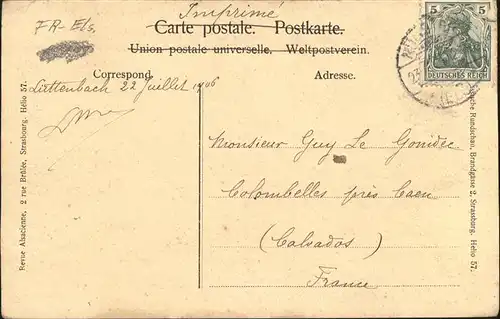 Imprimé
FR-Els,
Carte postale. Postkarte.
Union postale universelle. Weltpostverein.
Correspond.
Adresse.
5 5
DEUTSCHES REICH
Luttenbach 22 Juillet 1906
Monsieur Guy Le Gonidec
Colombelles près Caen
(Calvados)
France
Revue Alsacienne, 2 rue Brûlée, Strasbourg. Hélio 57.
Rundschau, Brandgasse 2, Strassburg. Hélio 57.